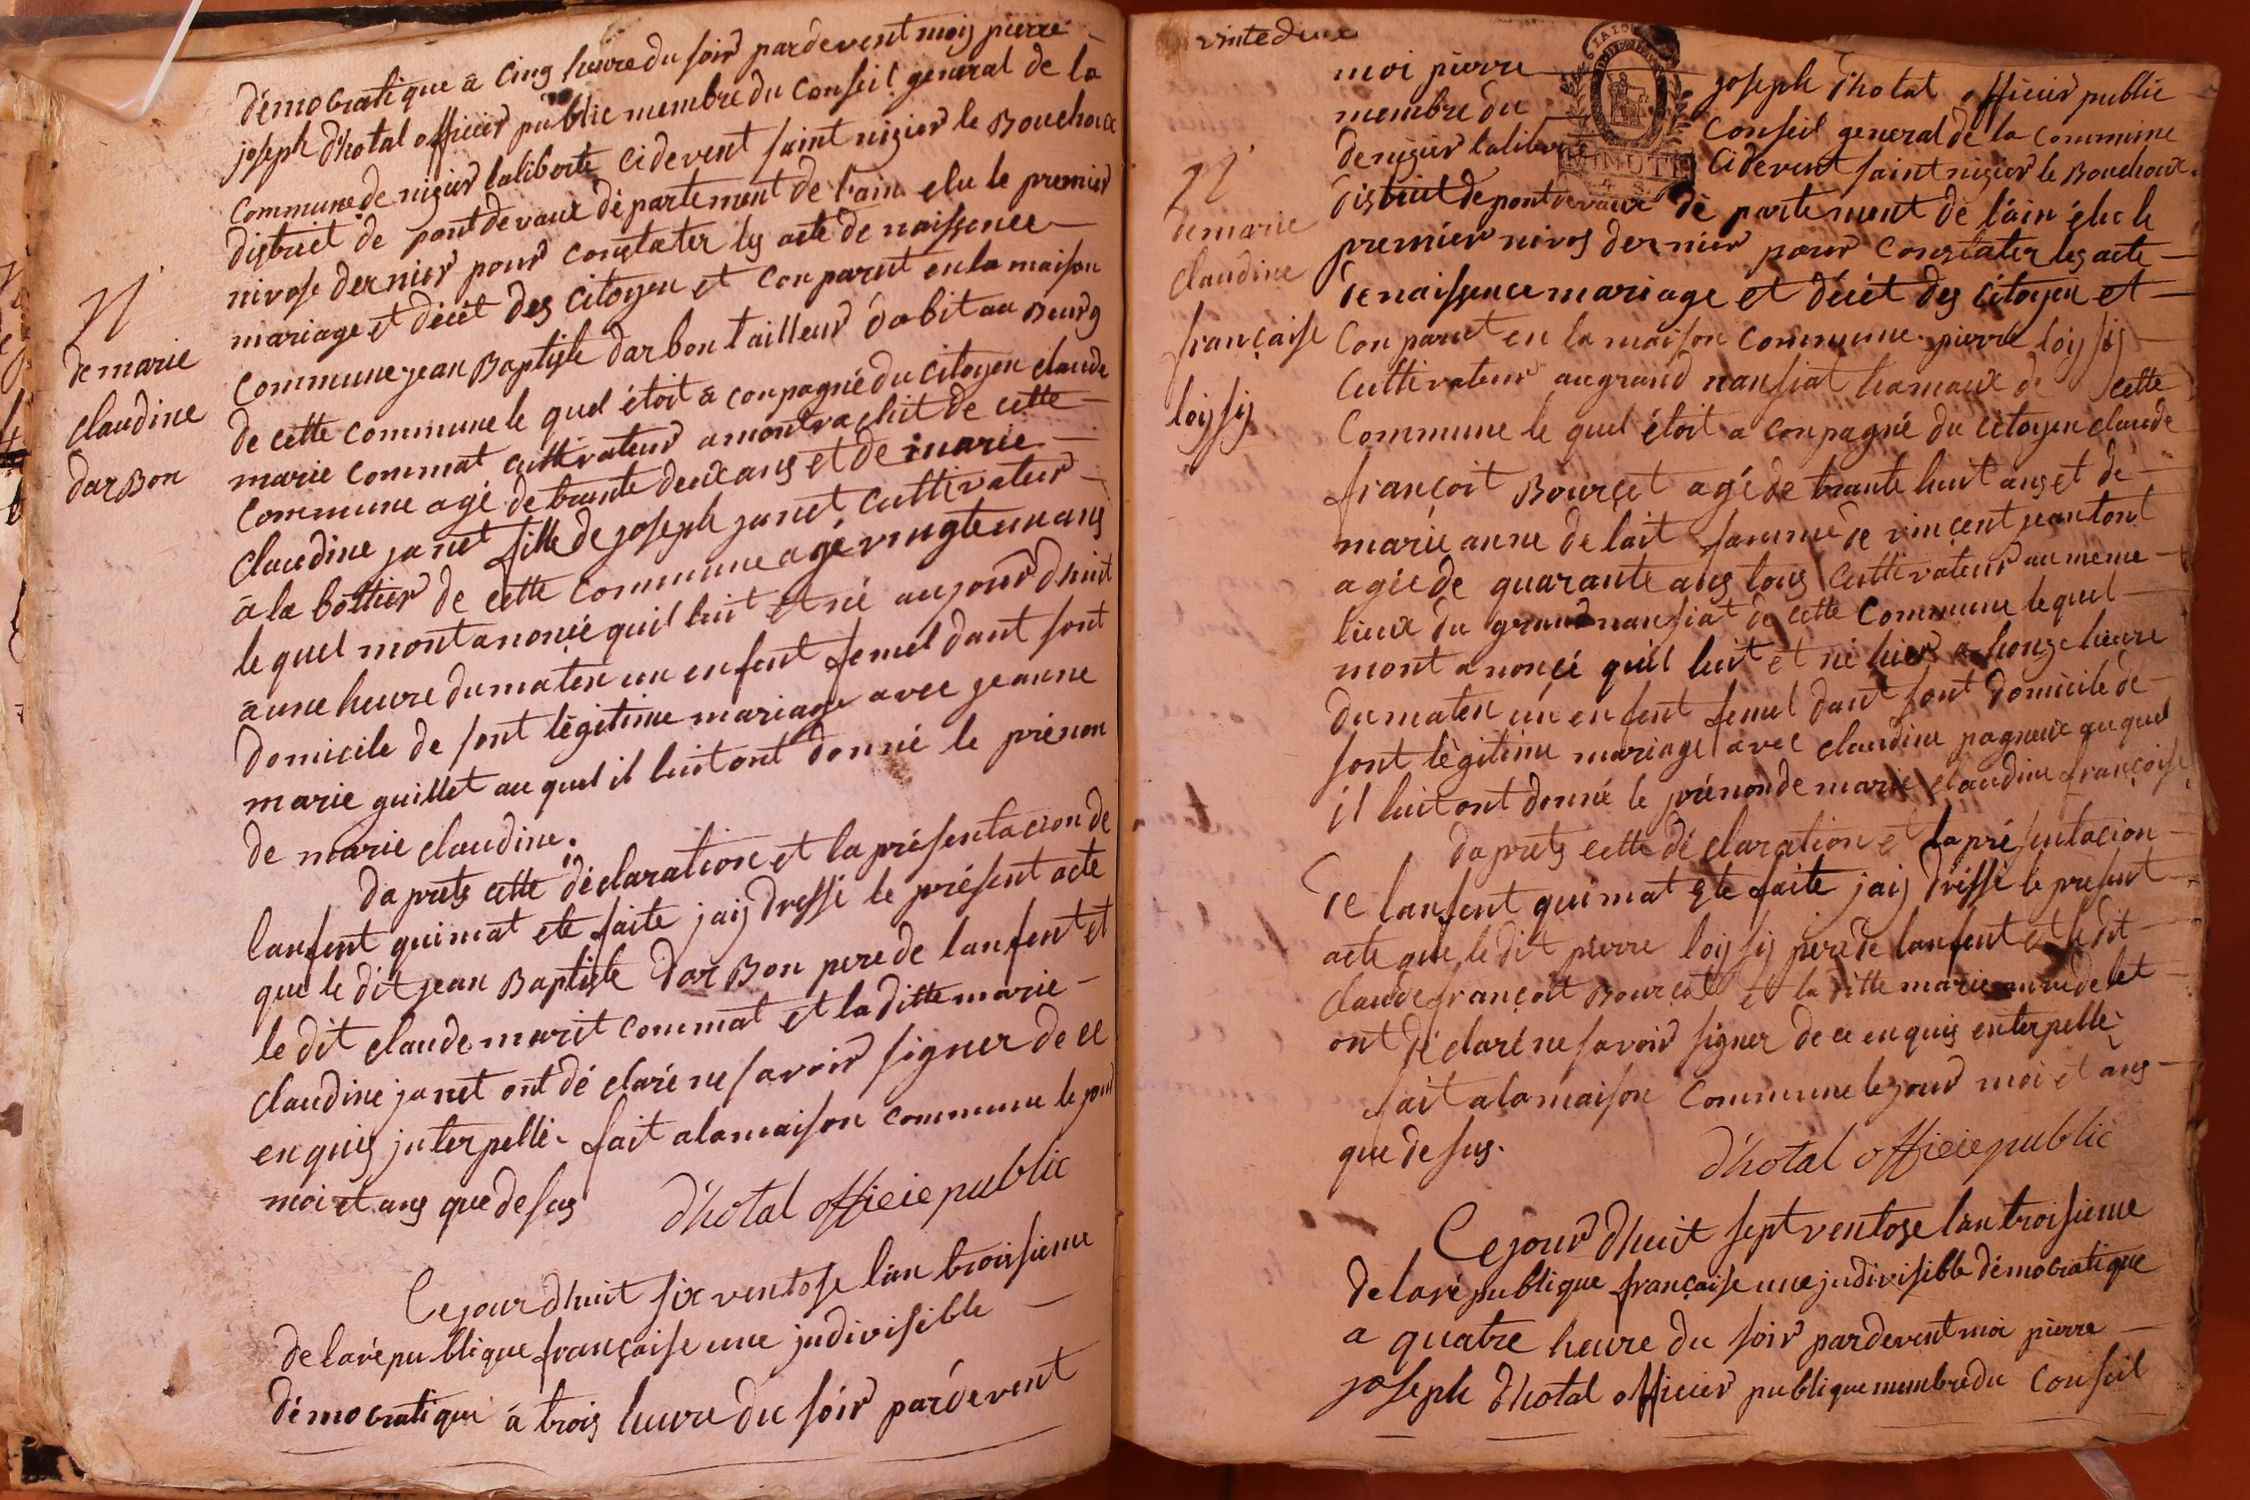 démocratique à cinq heure du soir pardevent moij pierre
joseph d'hotal officier public membre du Conseil general de la
Commune de nizier laliberté cidevent saint nizier le Bouchoux
district de pontdevaux département de l'ain elu le premier
nivose dernier pour constater les acte de naissence
mariage et décét des citoyen et Conparut en la maison
Commune jean Baptiste darbon tailleur dabit au Bourg
de cette commune le quel étoit a conpagné du citoyen claude
marie commat cultivateur a montrachit de cette
Commune agé de trante deux ans et de marie
Claudine janet fille de joseph janet cultivateur
à la bottier de cette commune agé vingte un ans
le quel mont anoncé quil luit et né aujourdhuit
à une heure du maten un enfent femel dant sont
Domicile de sont légitime mariage avec jeanne
marie guillet au quel il luit ont donné le prénon
de marie claudine.
daprets cette déclaration et la présentacion de
lanfent quimat ete faite jaij dressé le présent acte
que le dit jean Baptiste darBon pere de lanfent et
le dit claude marit commat et la ditte marie
claudine janet ont dé claré ne savoir signer de ce
enquis jnterpellé fait a la maison commune le jour
moi et ans que desus
d'hotal officie public
Ce jour dhuit six ventose l'an troisieme
de la république française une jndivisible
démocratique à trois heure du soir pardevent
N
de marie
claudine
darBon
vinte deux
moi pierre joseph d'hotal officier public
membre du Conseil general de la Commune
de nizier laliberté cidevent saint nizier le Bouchoux
MINUTE
district de pontdevaux de partement de l'ain élu le
premier nivos dernier pour Constater les acte
de naissence mariage et décét des citoyen et
Conparut en la maison commune pierre loijsij
Cultivateur au grand nansiat hamaux de cette
Commune le quel étoit a conpagné du citoyen claude
françoit Bourcet agé de trante huit ans et de
marie anne de lait famme de vincent jeantont
agée de quarante ans tous Cultivateur au meme
lieux du grand nansiat de cette Commune le quel
mont anoncé quil luit et né hier a honze heure
du maten un enfent femel dant sont domicile de
sont légitime mariage avec claudine pagneux au quel
il luit ont donné le prénon de marie claudine françoise
daprets cette déclaration et la présentacion
de lanfent quimat ete faite jaij dressé le présent
acte que le dit pierre loijsij pere de lanfent et le dit
claude françoit Bourcet et la ditte marie anne de let
ont dé claré ne savoir signer de ce enquis enterpellé
fait a la maison Commune le jour moi et ans
que desus.
d'hotal officie public
Ce jour dhuit sept ventose l'an troisieme
de la république française une jndivisible démocratique
a quatre heure du soir pardevent moi pierre
joseph d'hotal officier publique membre du Conseil
N
de marie
claudine
française
loijsij